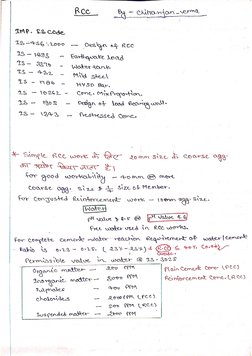 RCC By - Chitranjan_verma
IMP. IS Code
IS - 456:2000 — Design of RCC
IS - 1893 — Earthquake load
IS - 3370 — Water tank
IS - 432 — Mild steel
IS - 1786 — HYSD Bar.
IS - 10262 — Conc. Mix Proportion.
IS - 1905 — Design of load Bearing wall.
IS - 1343 — Prestressed Conc.
* Simple RCC work के लिए 20mm size के coarse agg.
का प्रयोग किया जाता है।
for good workability — 40mm or more
Coarse agg. size ≯ 1/4 size of Member.
For Congested Reinforcement work — 10mm agg. size.
Water
pH value ≥ 6
pH value ≮ 6
Free water used in RCC works.
for complete cement water reaction Requirement of water/cement
Ratio is
Permissible value in water @ IS-3025
Organic matter — 200 PPM
Inorganic matter — 3000 PPM
Sulphates — 400 PPM
Chlorides — 2000 PPM (PCC)
— 500 PPM (RCC)
Suspended matter — 2000 PPM
Plain Cement Conc (PCC)
Reinforcement Conc. (RCC)